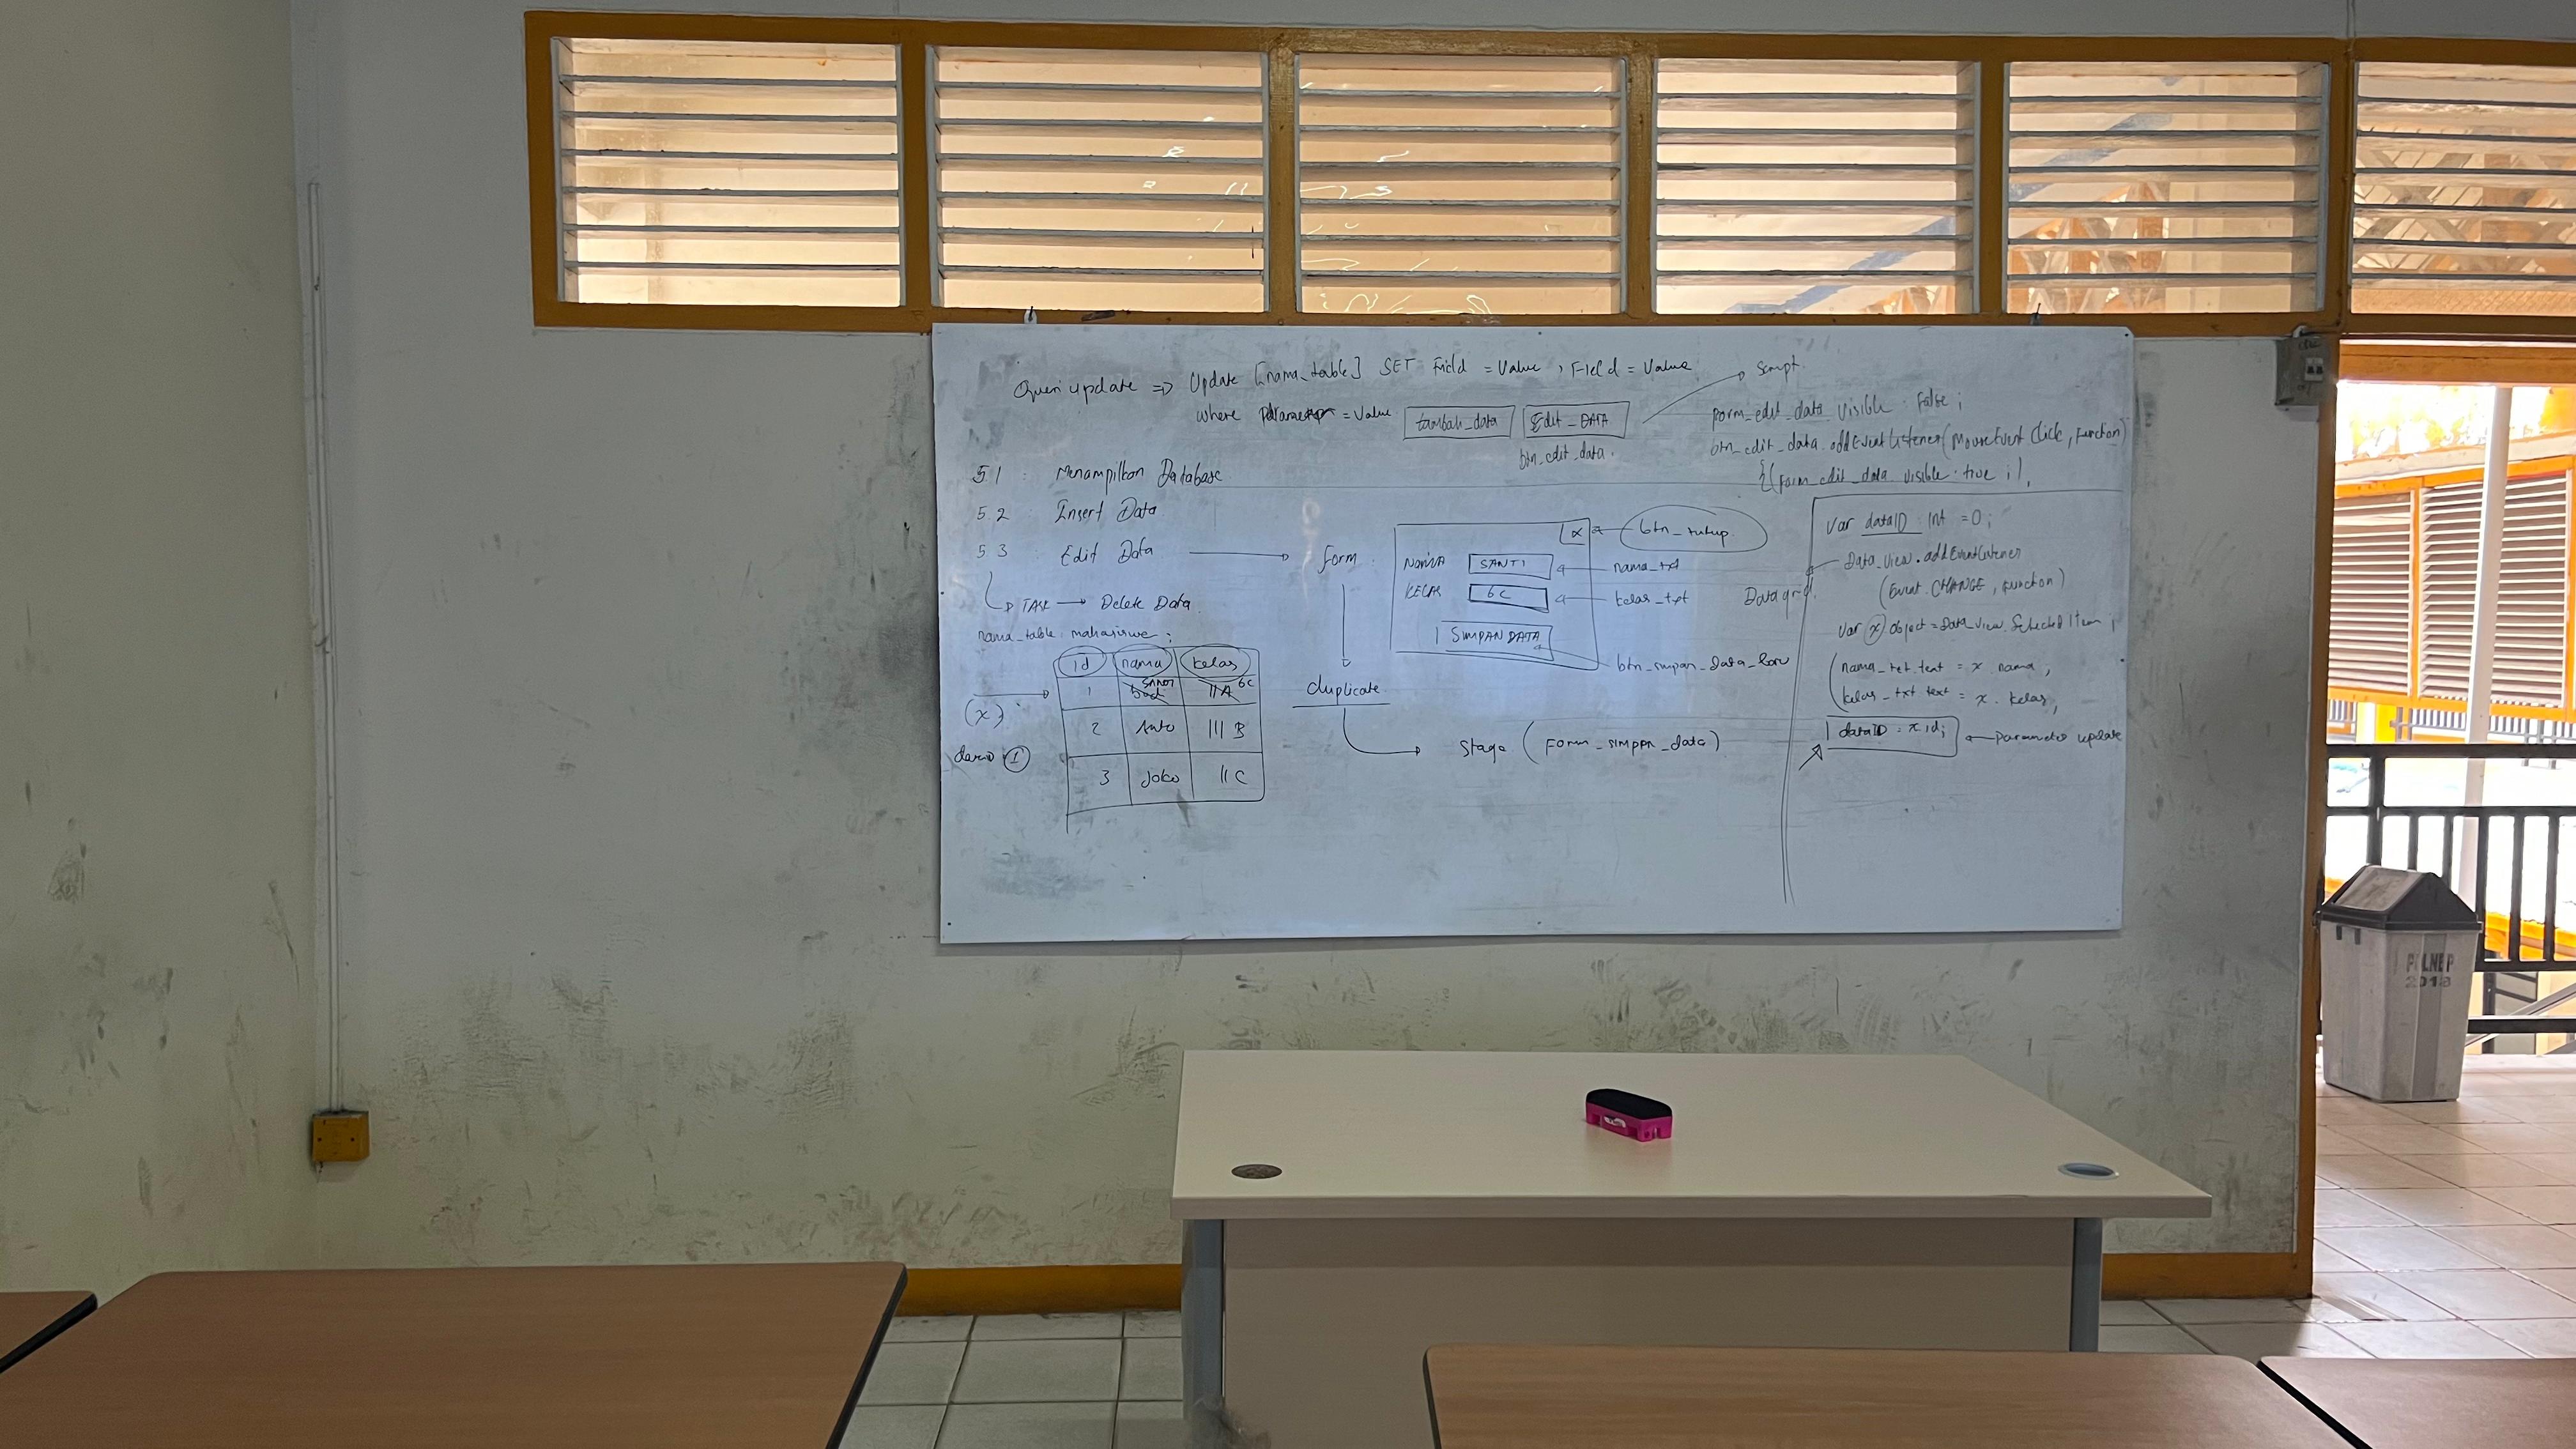 Queri update => Update [nama_table] SET Field = Value, Field = Value
where parameter = Value
tambah_data
Edit_DATA
btn_edit_data.
Script
form_edit_data visible. False;
btn_edit_data.addEventListener(MouseEvent Click, Function)
{(Form_edit_data visible. true;),
5.1 : Menampilkan Database
5.2 : Insert Data
5.3 : Edit Data
Form :
TASK → Delete Data.
x btn_tutup.
NAMA SANTI nama_txt
KELAS 6C kelas_txt
SIMPAN DATA
duplicate.
stage (Form_simpan_data)
nama_table mahasiswa;
id nama kelas
1 SANTI 6C
IIA
2 Anto III B
3 Joko II C
(x)
1
Datagrid.
Var dataID Int = 0;
Data_view.addEventListener
(Event.CHANGE, Function)
Var (x) object = Data_view.Selected Item;
nama_txt.text = x nama,
kelas_txt text = x. kelas,
dataID = x.id; Parameter update
POLNEP
2018